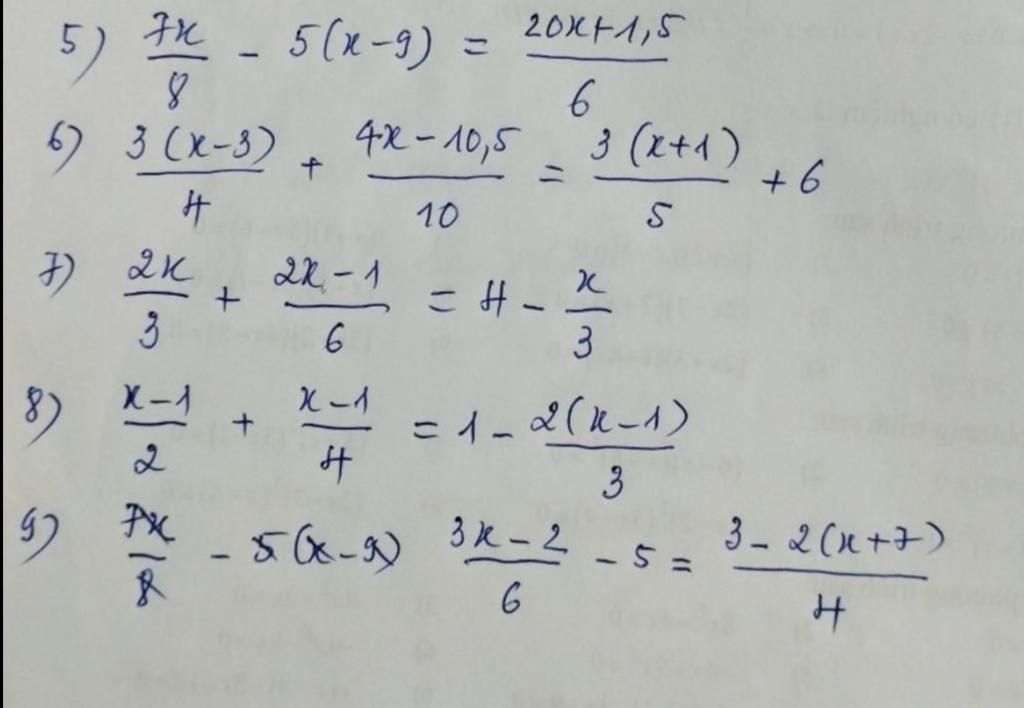 5) 7x/8 - 5(x-9) = (20x+1,5)/6
6) 3(x-3)/4 + (4x-10,5)/10 = 3(x+1)/5 + 6
7) 2x/3 + (2x-1)/6 = 4 - x/3
8) (x-1)/2 + (x-1)/4 = 1 - 2(x-1)/3
9) 7x/8 - 5(x-9) (3x-2)/6 - 5 = (3-2(x+7))/4